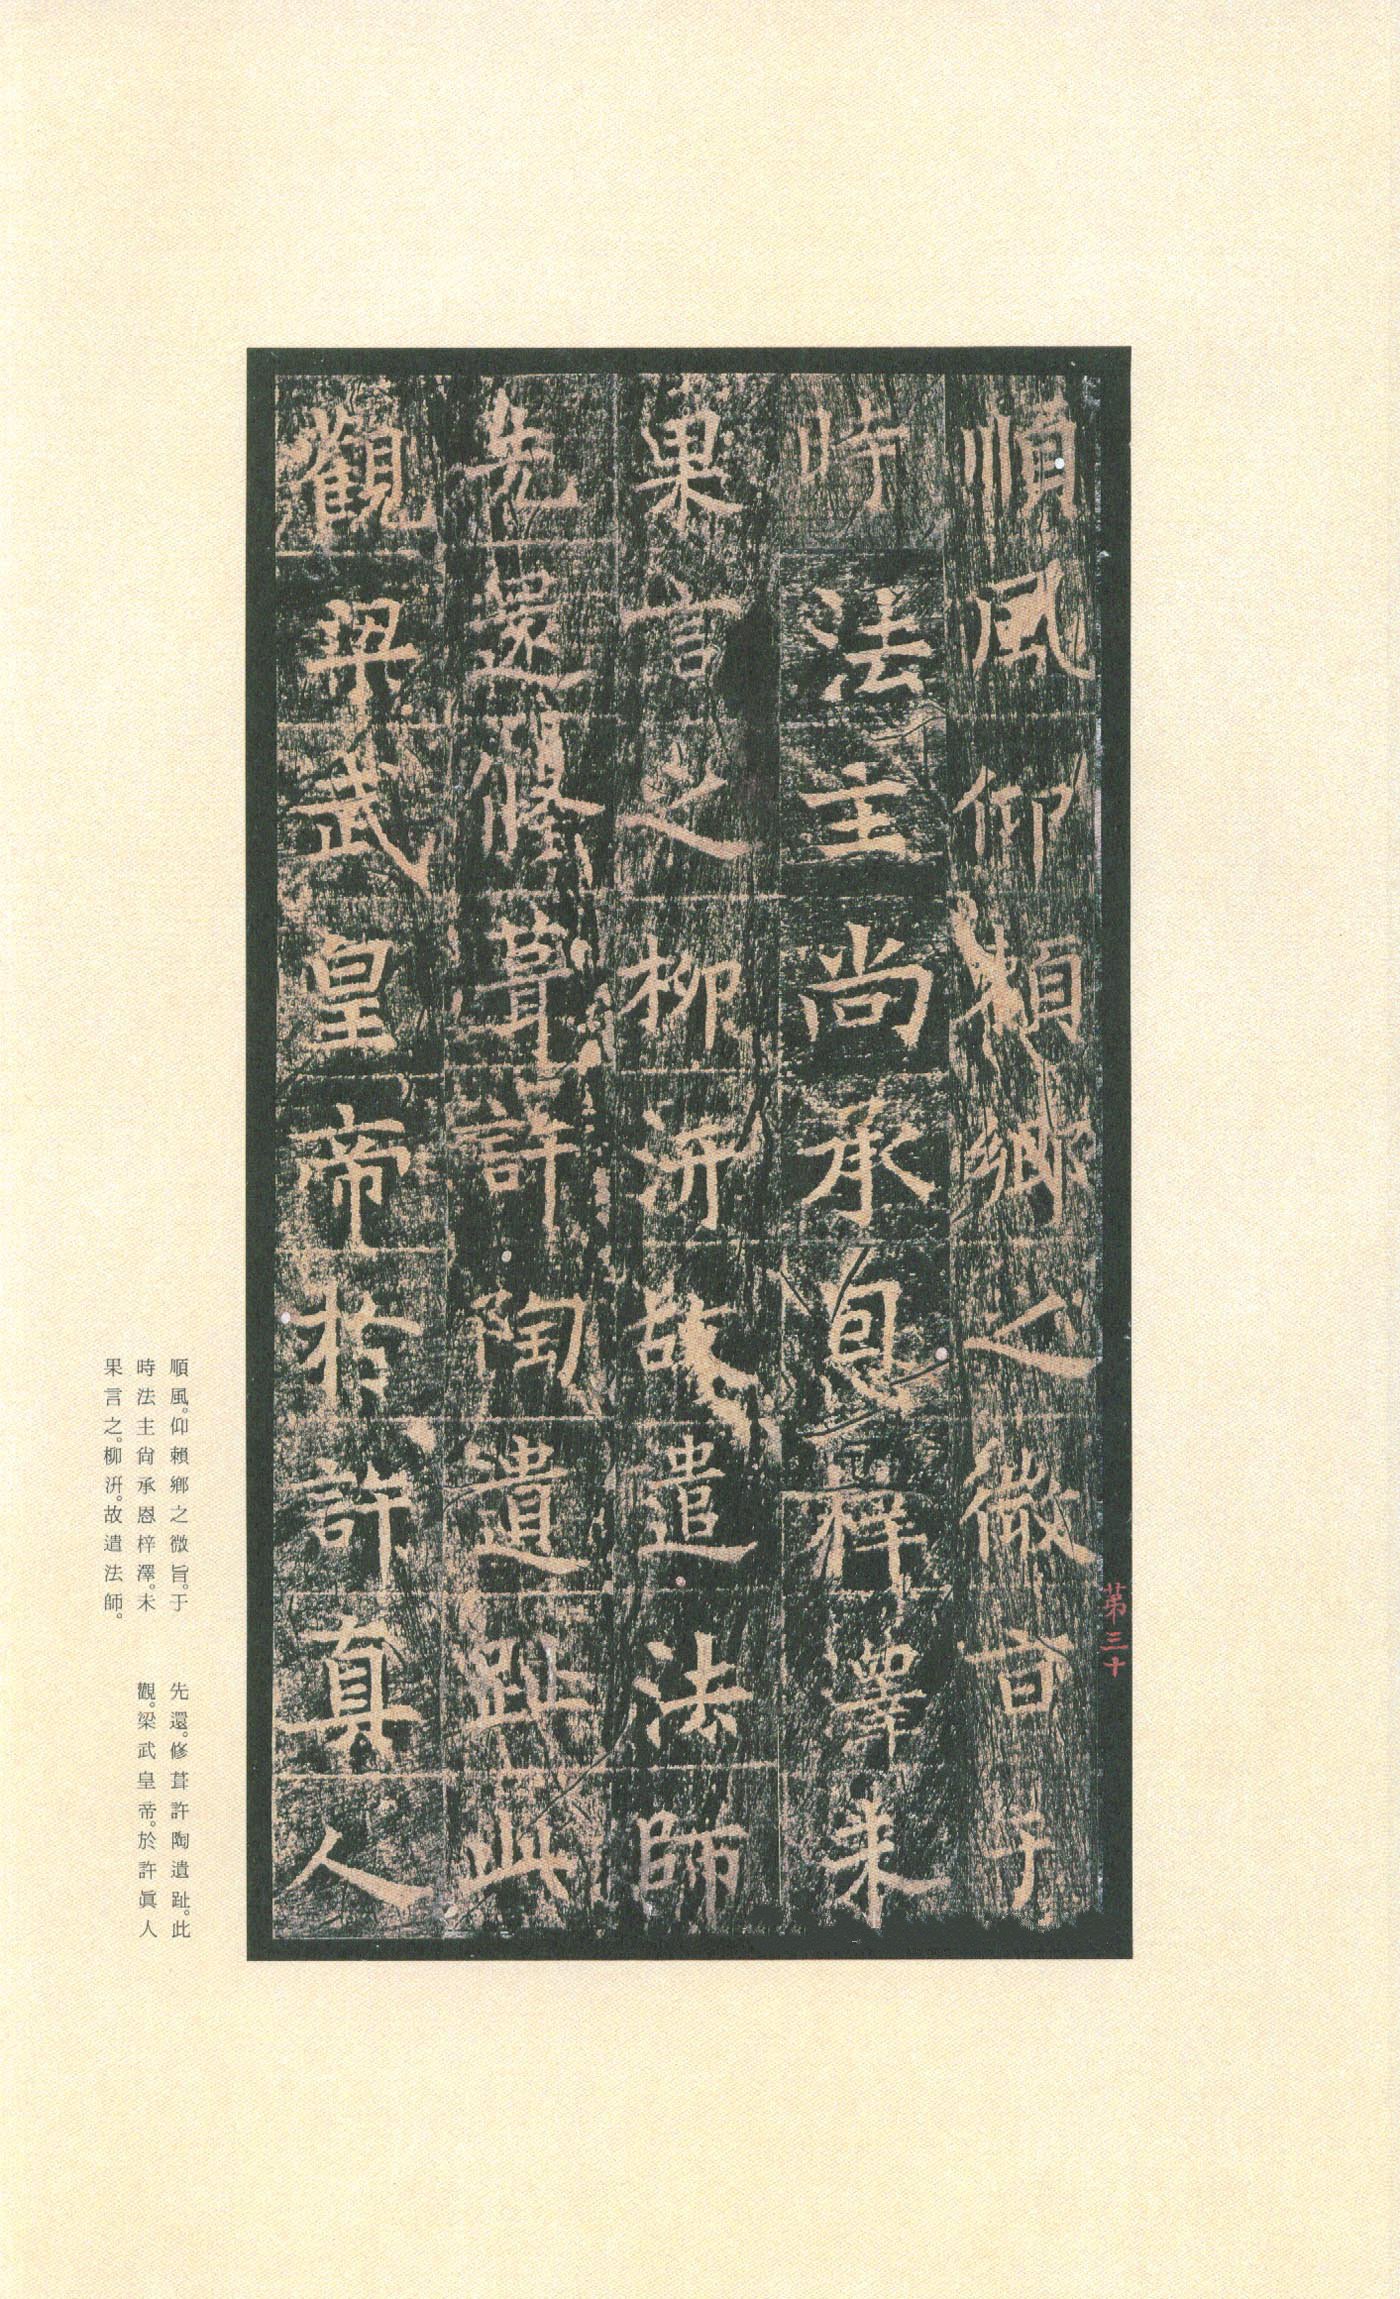 順風仰賴鄉之微旨于
時法主尚承恩梓澤未
果言之柳汧故遣法師
先還修葺許陶遺趾此
觀梁武皇帝於許真人
第三十
順風。仰賴鄉之微旨。于
時法主尙承恩梓澤。未
果言之。柳汧。故遣法師。
先還。修葺許陶遺趾。此
觀。梁武皇帝。於許眞人